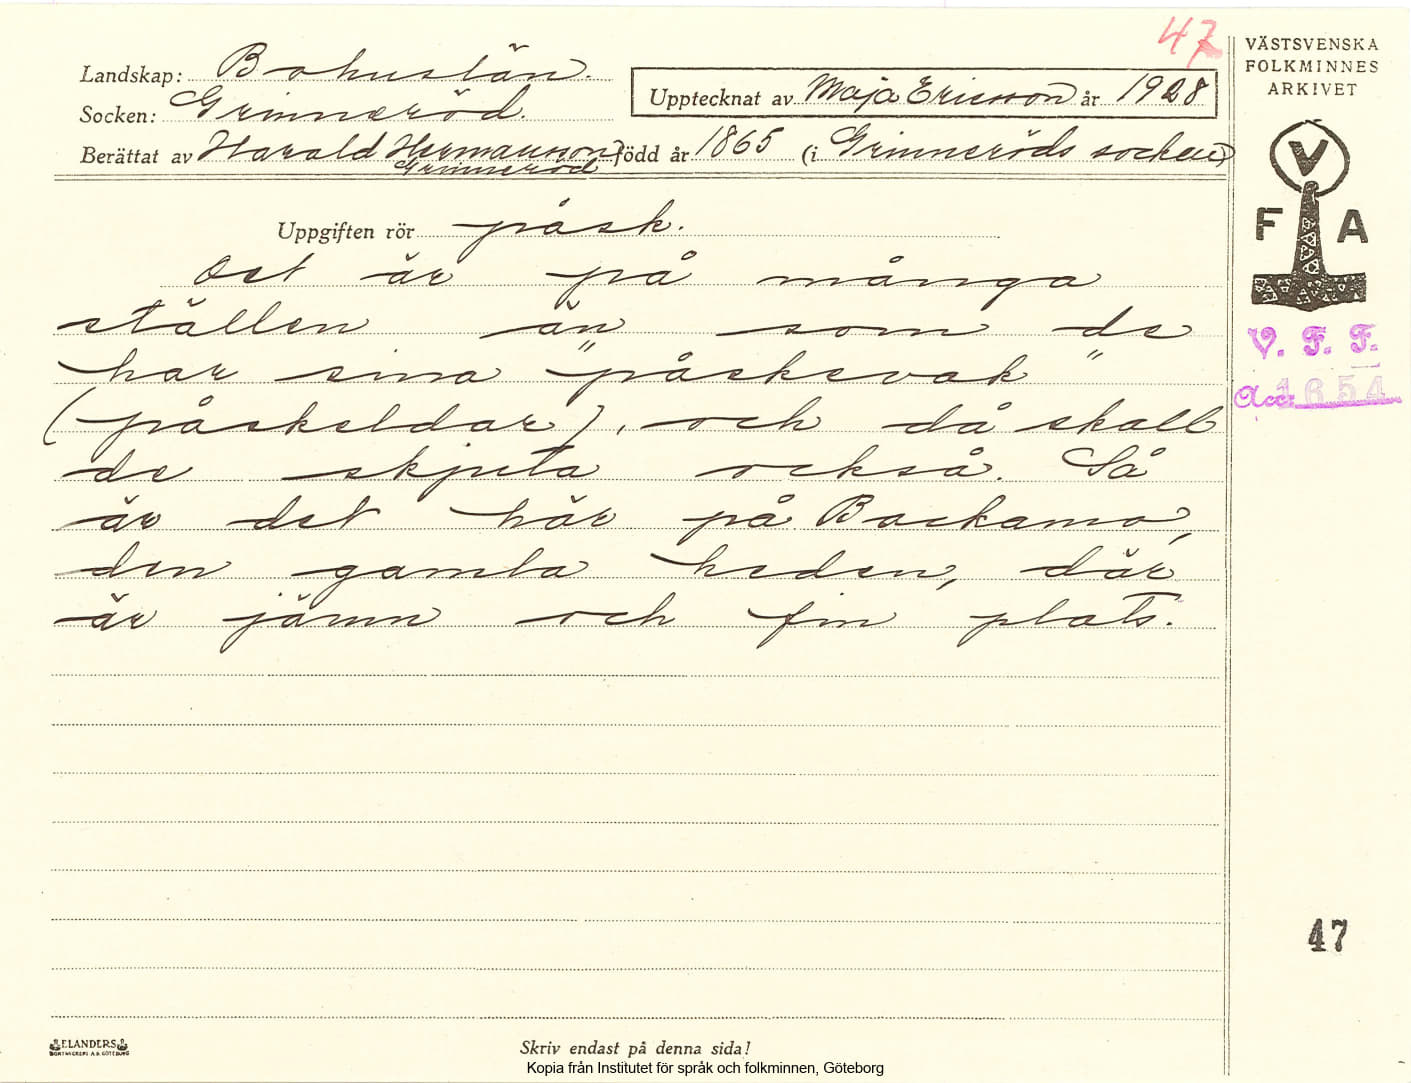 47
Landskap: Bohuslän.
Socken: Grinneröd.
Upptecknat av Maja Ericson år 1928
Berättat av Harald Hermanson född år 1865 (i Grinneröds socken)
Grinneröd
VÄSTSVENSKA
FOLKMINNES
ARKIVET
V
F A
V. F. F.
Acc: 1654
Uppgiften rör påsk.
Det är på många
ställen än som de
har sina "påskevak"
(påskeldar), och då skall
de skjuta också. Så
är det här på Backamo,
den gamla heden, där
är jämn och fin plats.
47
ELANDERS
BOKTRYCKERI A.B. GÖTEBORG
Skriv endast på denna sida!
Kopia från Institutet för språk och folkminnen, Göteborg